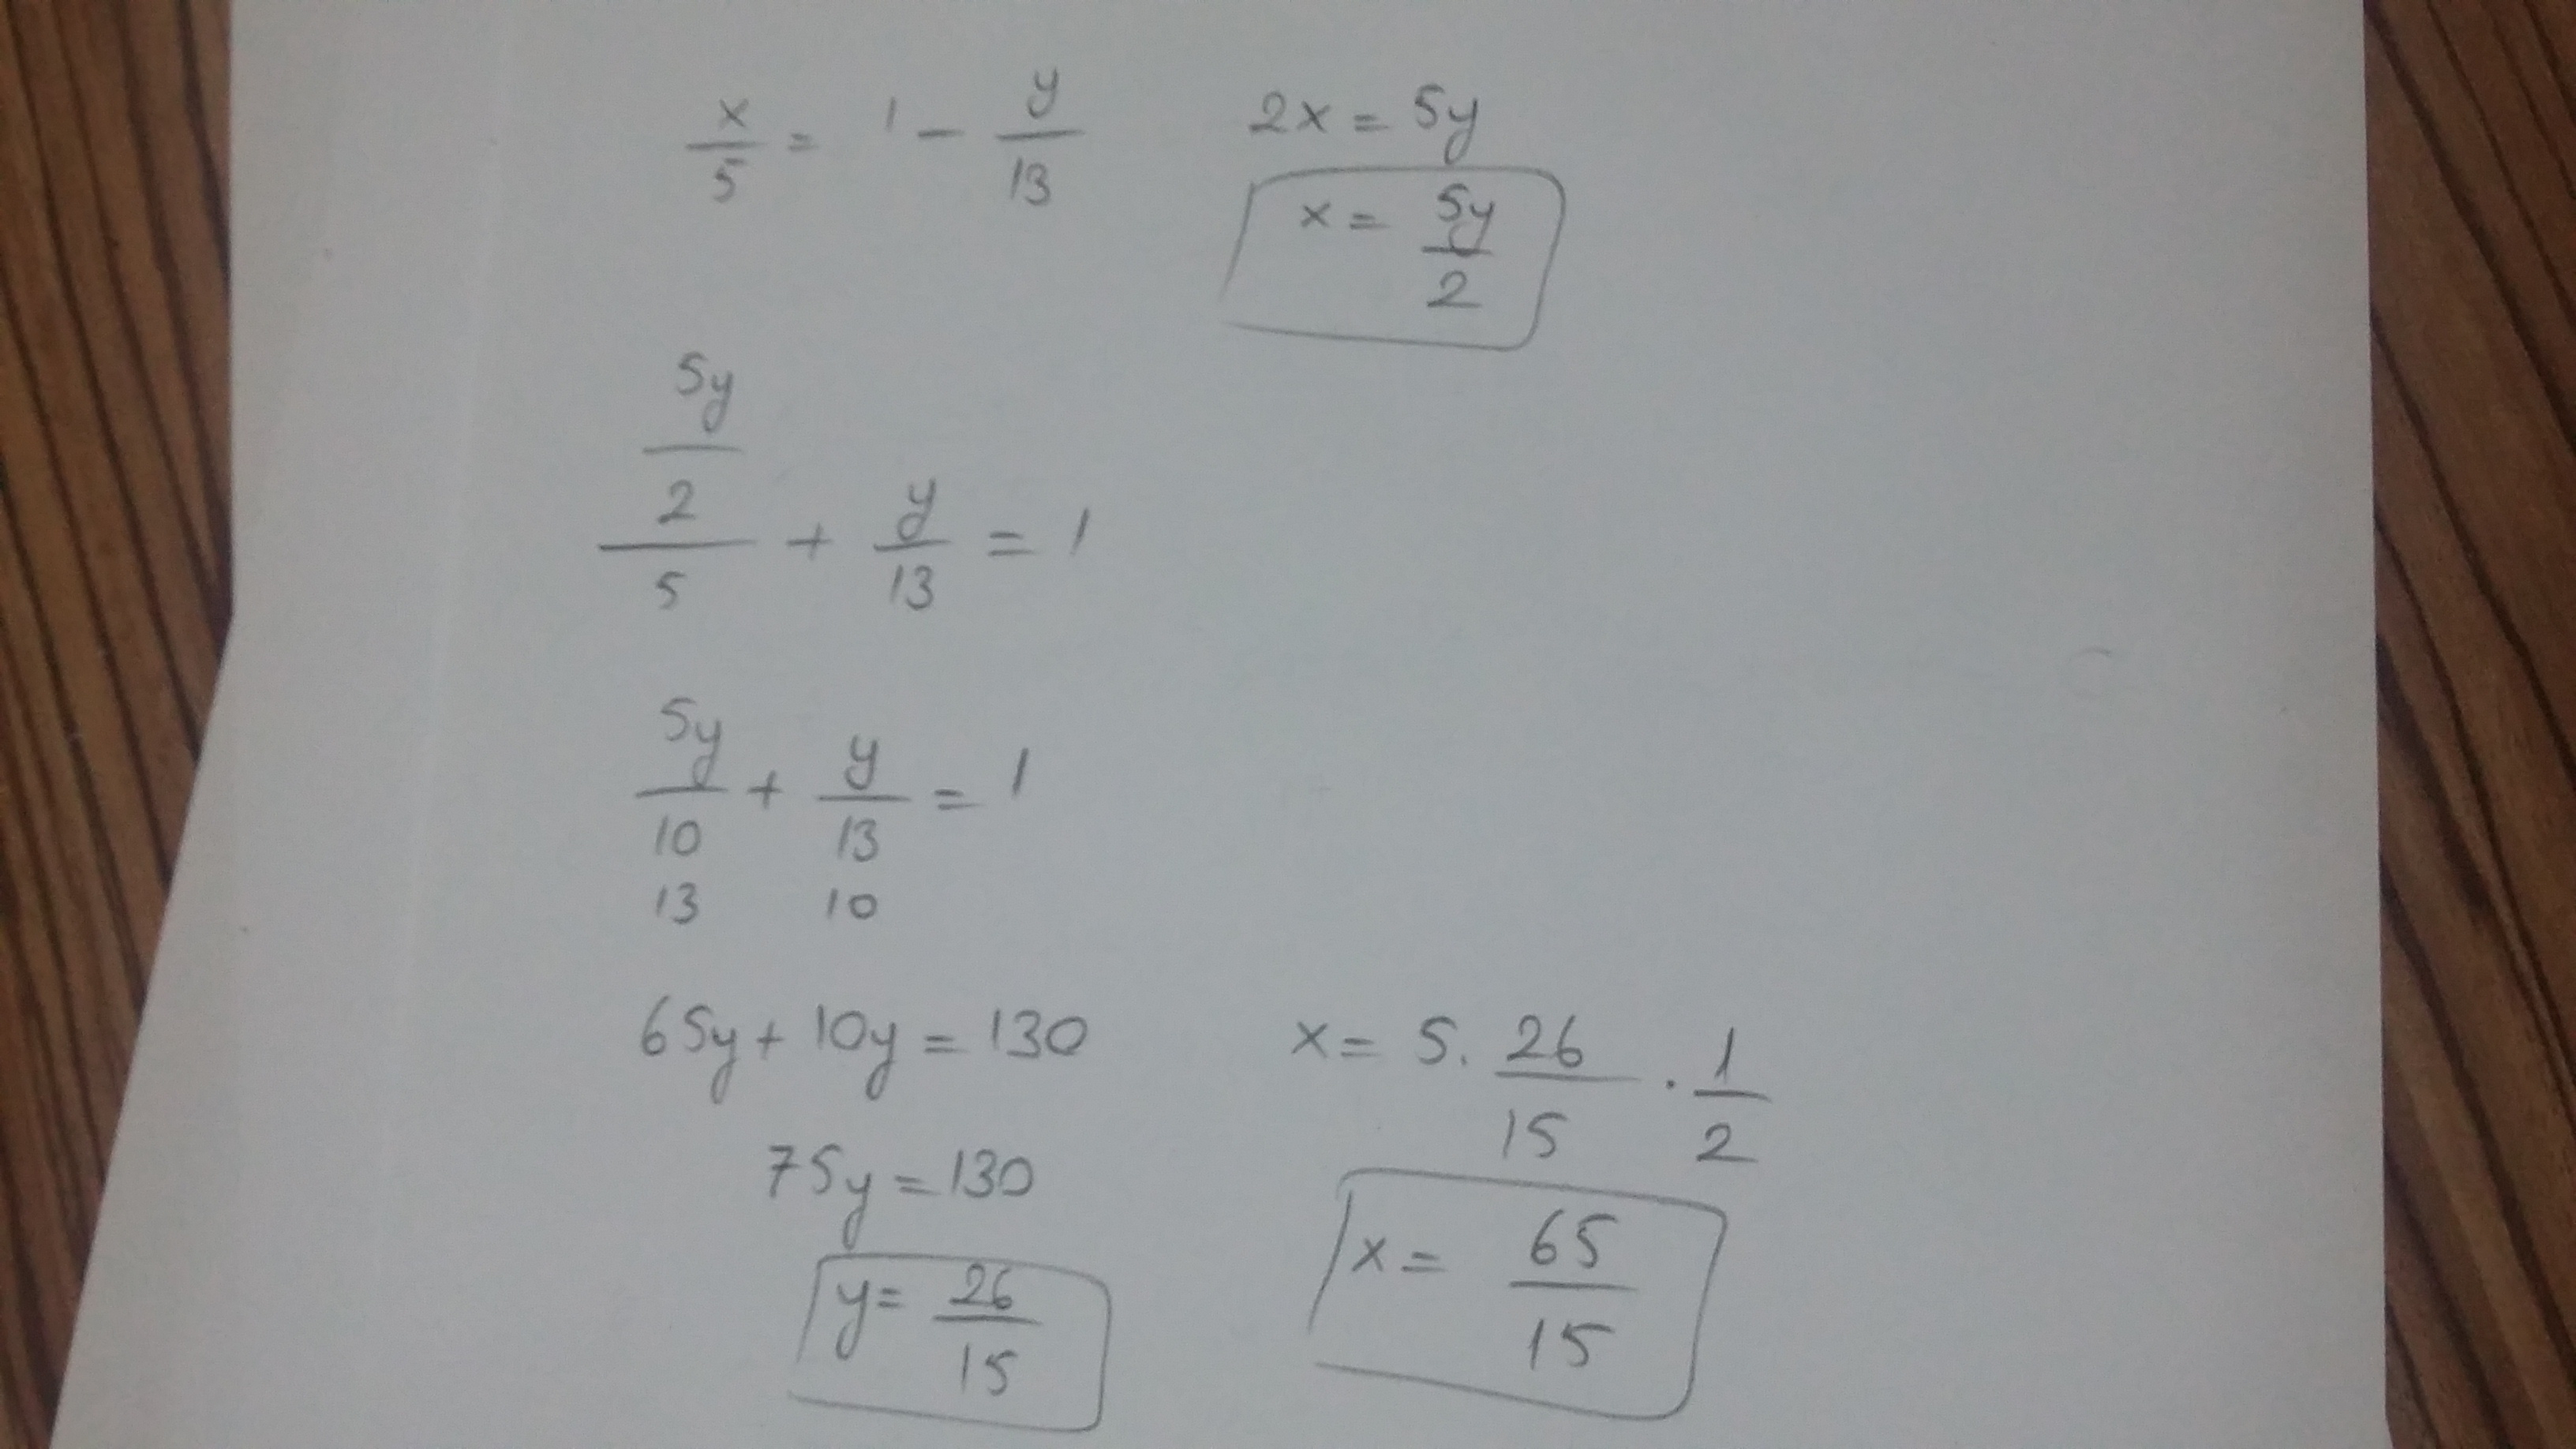 x/5 = 1 - y/13
2x = 5y
x = 5y/2
5y/2/5 + y/13 = 1
5y/10 + y/13 = 1
13 10
65y + 10y = 130
75y = 130
y = 26/15
x = 5 . 26/15 . 1/2
x = 65/15